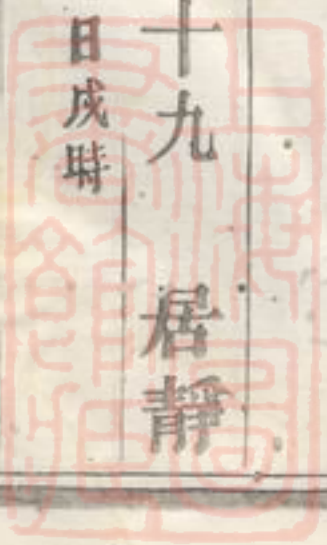 十九 居靜
日戌時